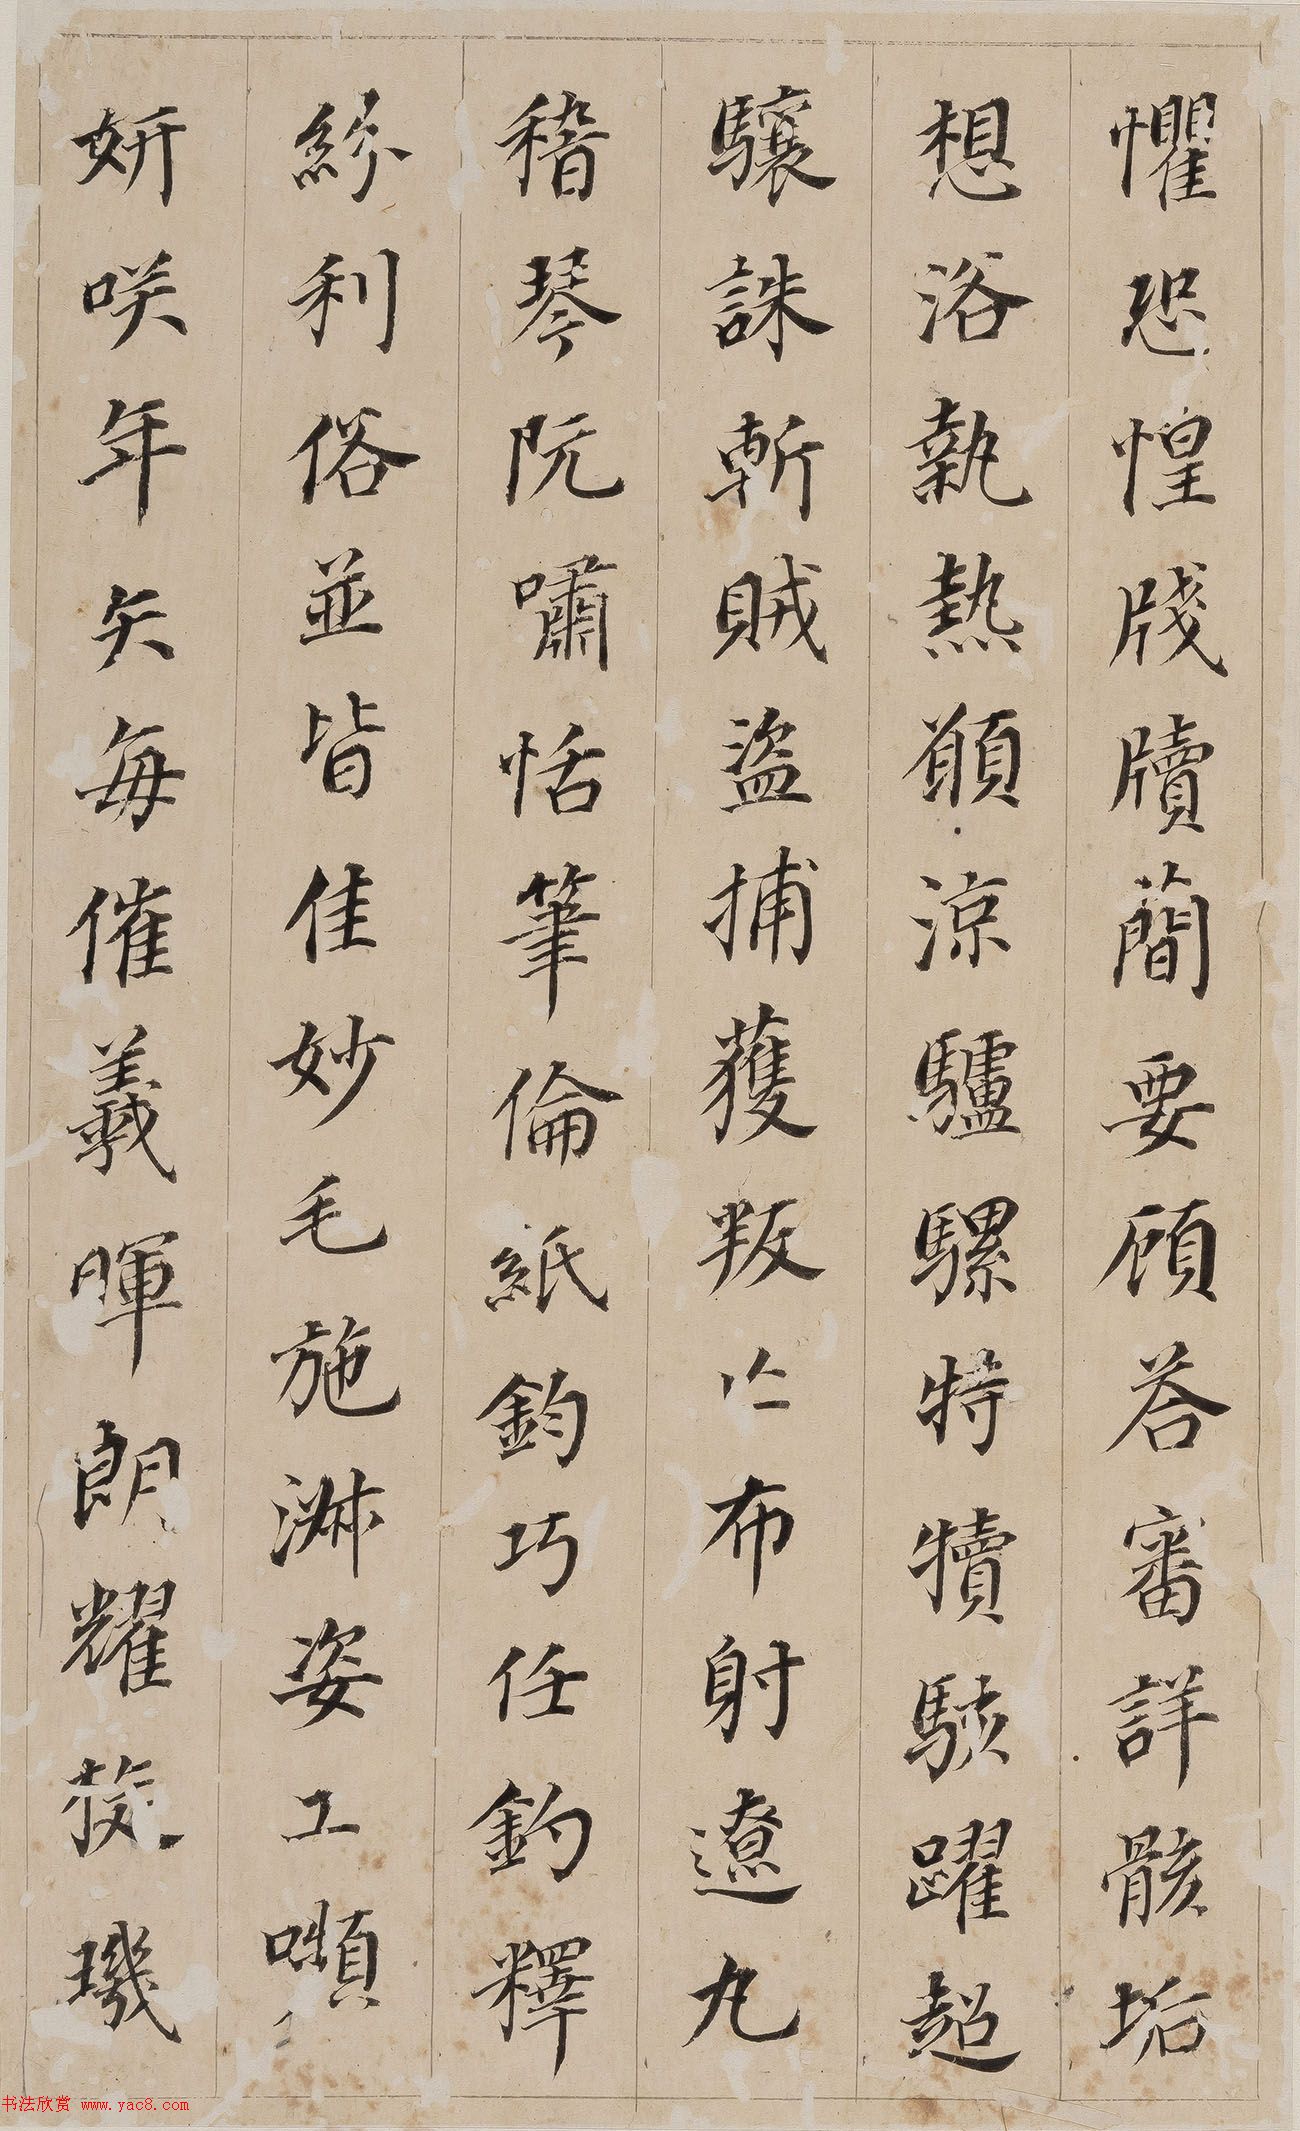 懼恐惶牋牘簡要顧答審詳骸垢
想浴執熱願涼驢騾特犢駭躍超
驤誅斬賊盜捕獲叛亡布射遼丸
稽琴阮嘯恬筆倫紙鈞巧任釣釋
紛利俗並皆佳妙毛施淑姿工嚬
妍咲年矢每催羲暉朗耀旋璣
书法欣赏 www.yac8.com